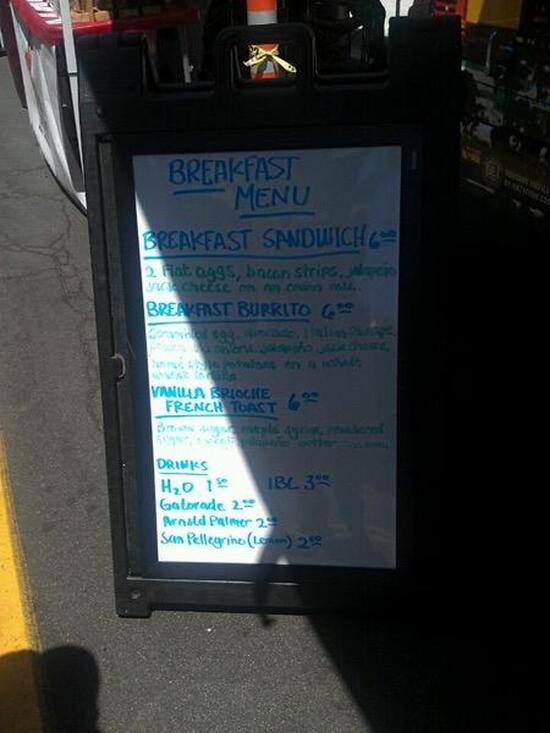 BREAKFAST
MENU
BREAKFAST SANDWICH 6.00
2 Flat eggs, bacon strips, jalapeño
jack cheese on an onion roll.
BREAKFAST BURRITO 6.00
Scrambled egg, avocado, Italian sausage,
onions, jalapeño jack cheese,
home style potatoes on a whole
wheat tortilla
VANILLA BRIOCHE
FRENCH TOAST 6.00
Brown sugar, maple syrup, powdered
sugar, sweet jalapeño butter
DRINKS
H2O 1.50 IBC 3.00
Gatorade 2.00
Arnold Palmer 2.00
San Pellegrino (Lemon) 2.00